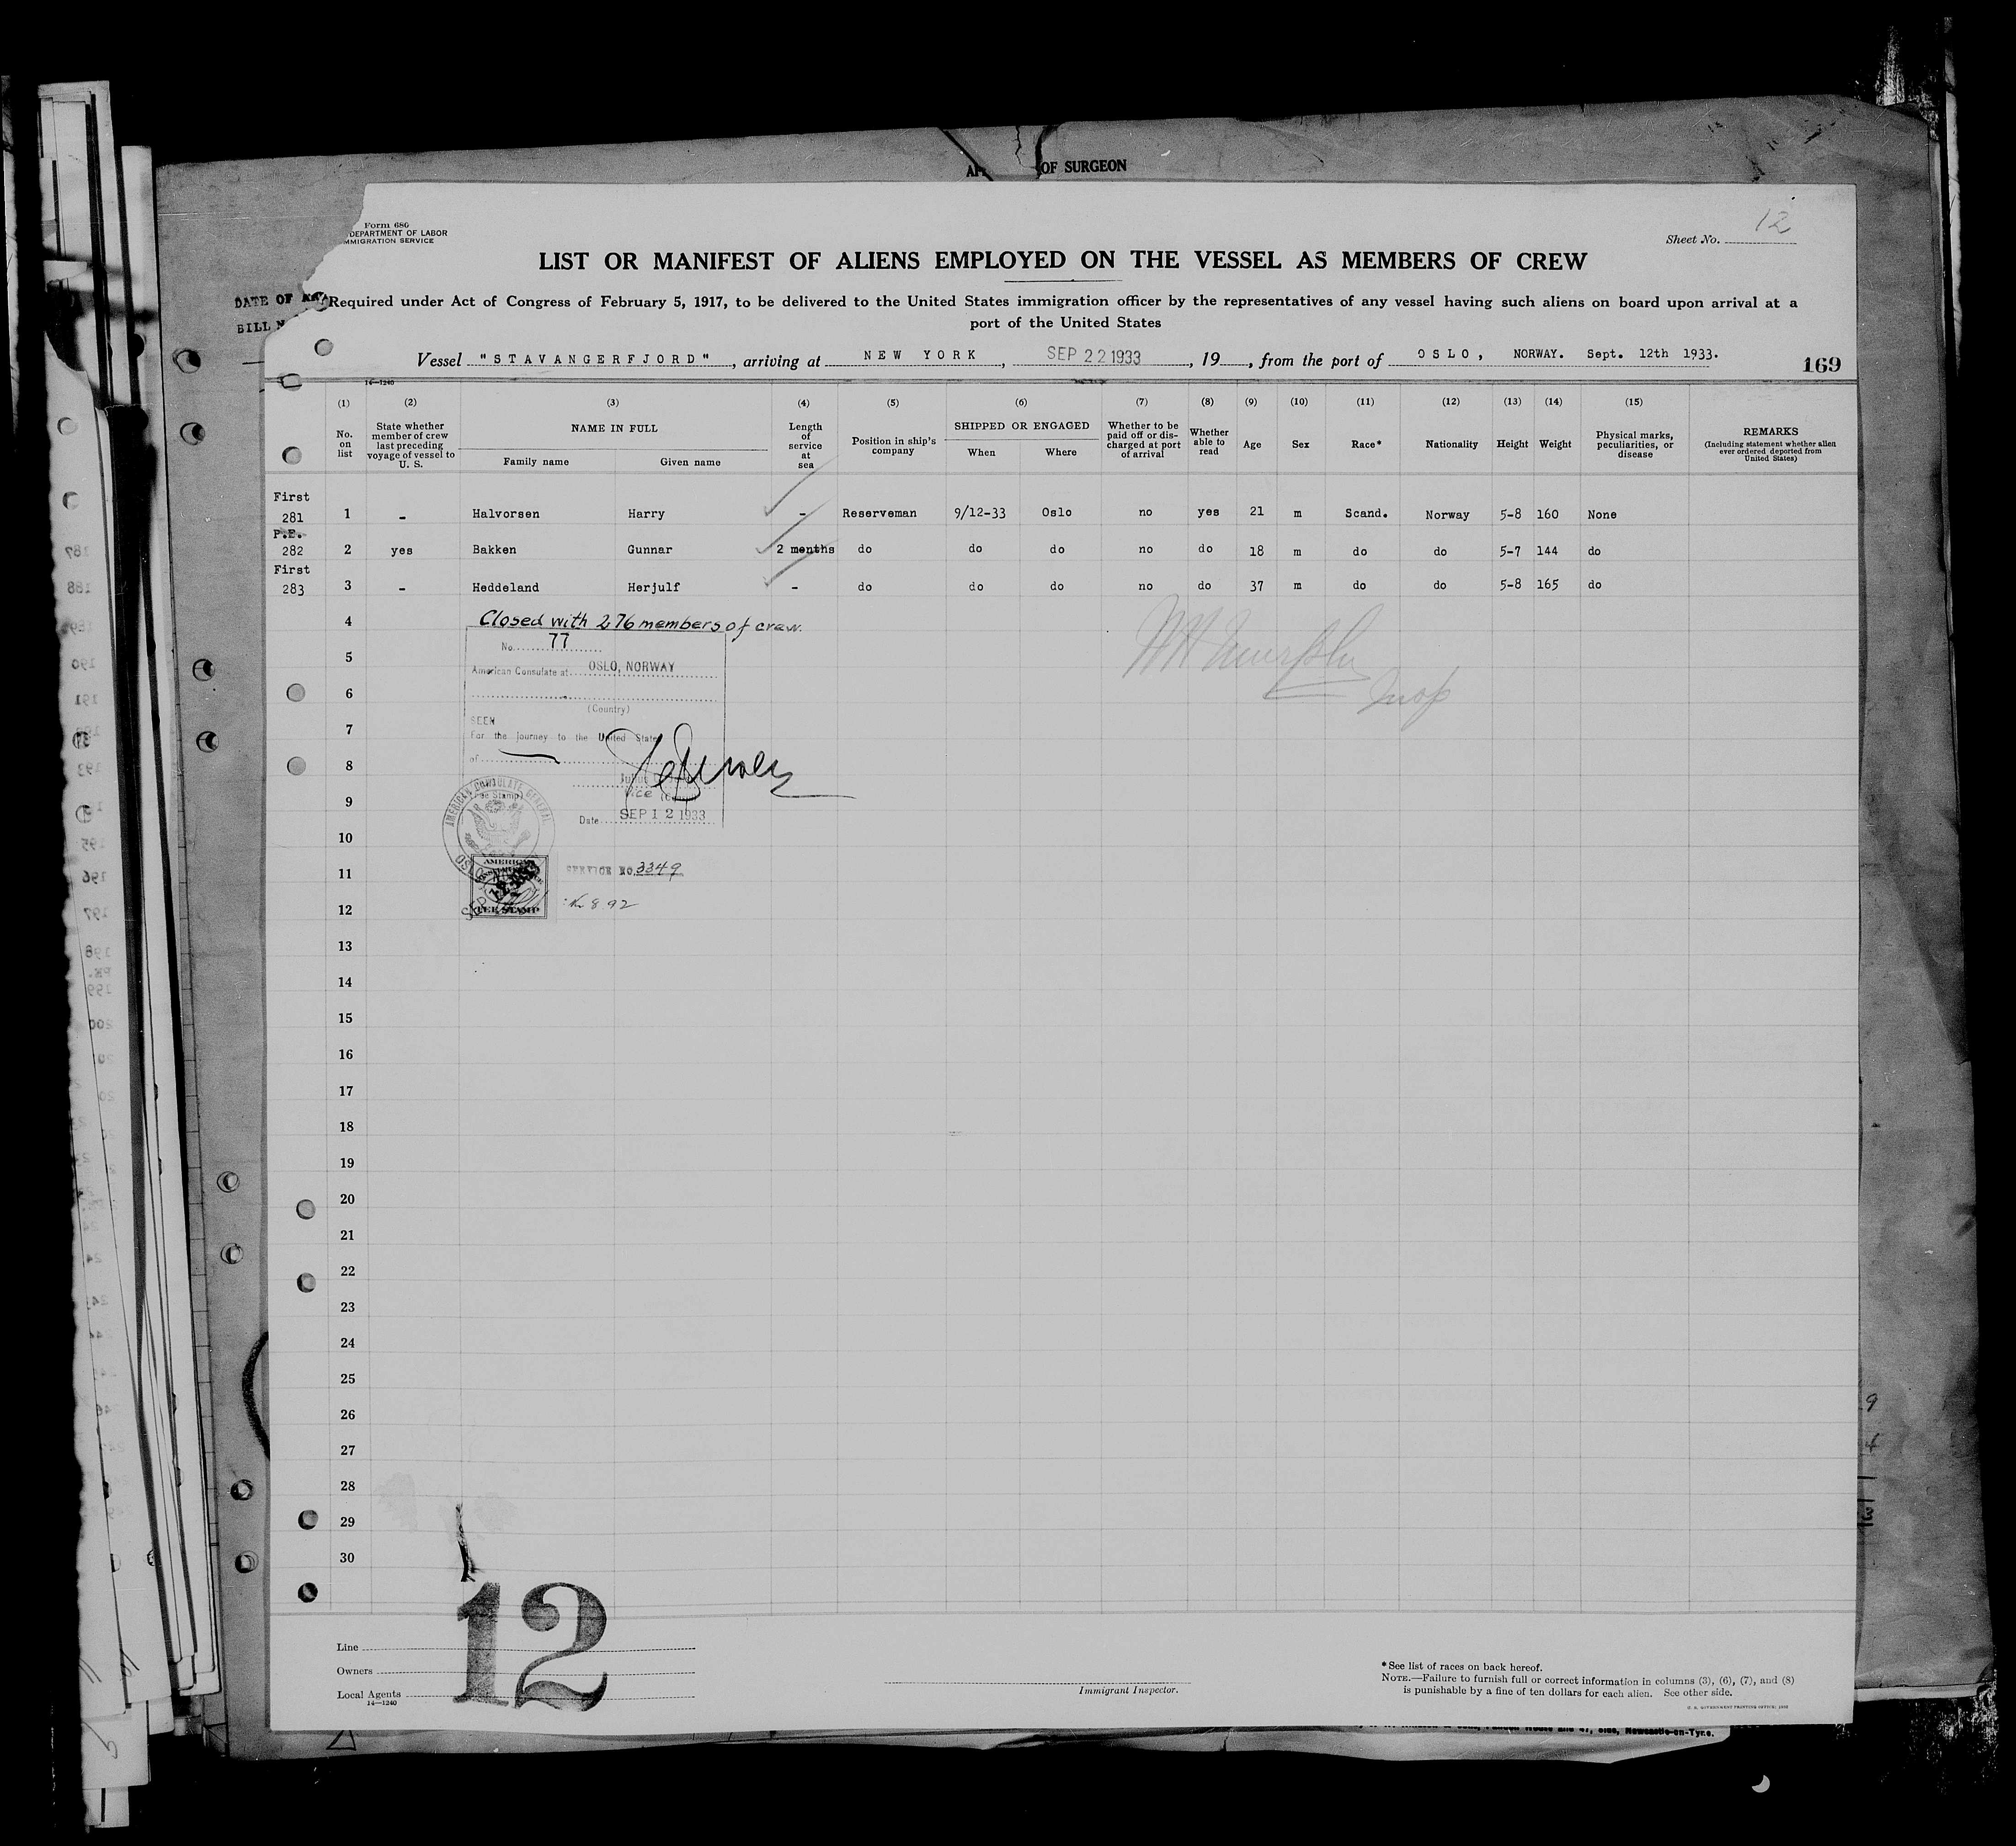 OF SURGEON
Form 680
DEPARTMENT OF LABOR
IMMIGRATION SERVICE
Sheet No. 12
LIST OR MANIFEST OF ALIENS EMPLOYED ON THE VESSEL AS MEMBERS OF CREW
DATE OF
BILL
Required under Act of Congress of February 5, 1917, to be delivered to the United States immigration officer by the representatives of any vessel having such aliens on board upon arrival at a
port of the United States
Vessel "STAVANGERFJORD", arriving at NEW YORK, SEP 22 1933, 19, from the port of OSLO, NORWAY. Sept. 12th 1933.
169
14—1240
(1) (2) (3) (4) (5) (6) (7) (8) (9) (10) (11) (12) (13) (14) (15)
No. on list
State whether member of crew last preceding voyage of vessel to U. S.
NAME IN FULL
Family name Given name
Length of service at sea
Position in ship's company
SHIPPED OR ENGAGED
When Where
Whether to be paid off or discharged at port of arrival
Whether able to read
Age Sex Race* Nationality Height Weight
Physical marks, peculiarities, or disease
REMARKS
(Including statement whether alien ever ordered deported from United States)
First
281 1 - Halvorsen Harry - Reserveman 9/12-33 Oslo no yes 21 m Scand. Norway 5-8 160 None
P.E.
282 2 yes Bakken Gunnar 2 months do do do no do 18 m do do 5-7 144 do
First
283 3 - Heddeland Herjulf - do do do no do 37 m do do 5-8 165 do
4 Closed with 276 members of crew.
No. 77
5
American Consulate at OSLO, NORWAY
6
(Country)
SEEN
7
For the journey to the United States
of
8
Vice
9
AMERICAN CONSULATE GENERAL
OSLO
(Fee Stamp)
Date SEP 12 1933
10
11
SERVICE NO. 3349
12
FEE STAMP
892
13
14
15
16
17
18
19
20
21
22
23
24
25
26
27
28
29
30
12
Line
Owners
Local Agents
14—1240
Immigrant Inspector.
*See list of races on back hereof.
NOTE.—Failure to furnish full or correct information in columns (3), (6), (7), and (8)
is punishable by a fine of ten dollars for each alien. See other side.
Newcastle-on-Tyne.